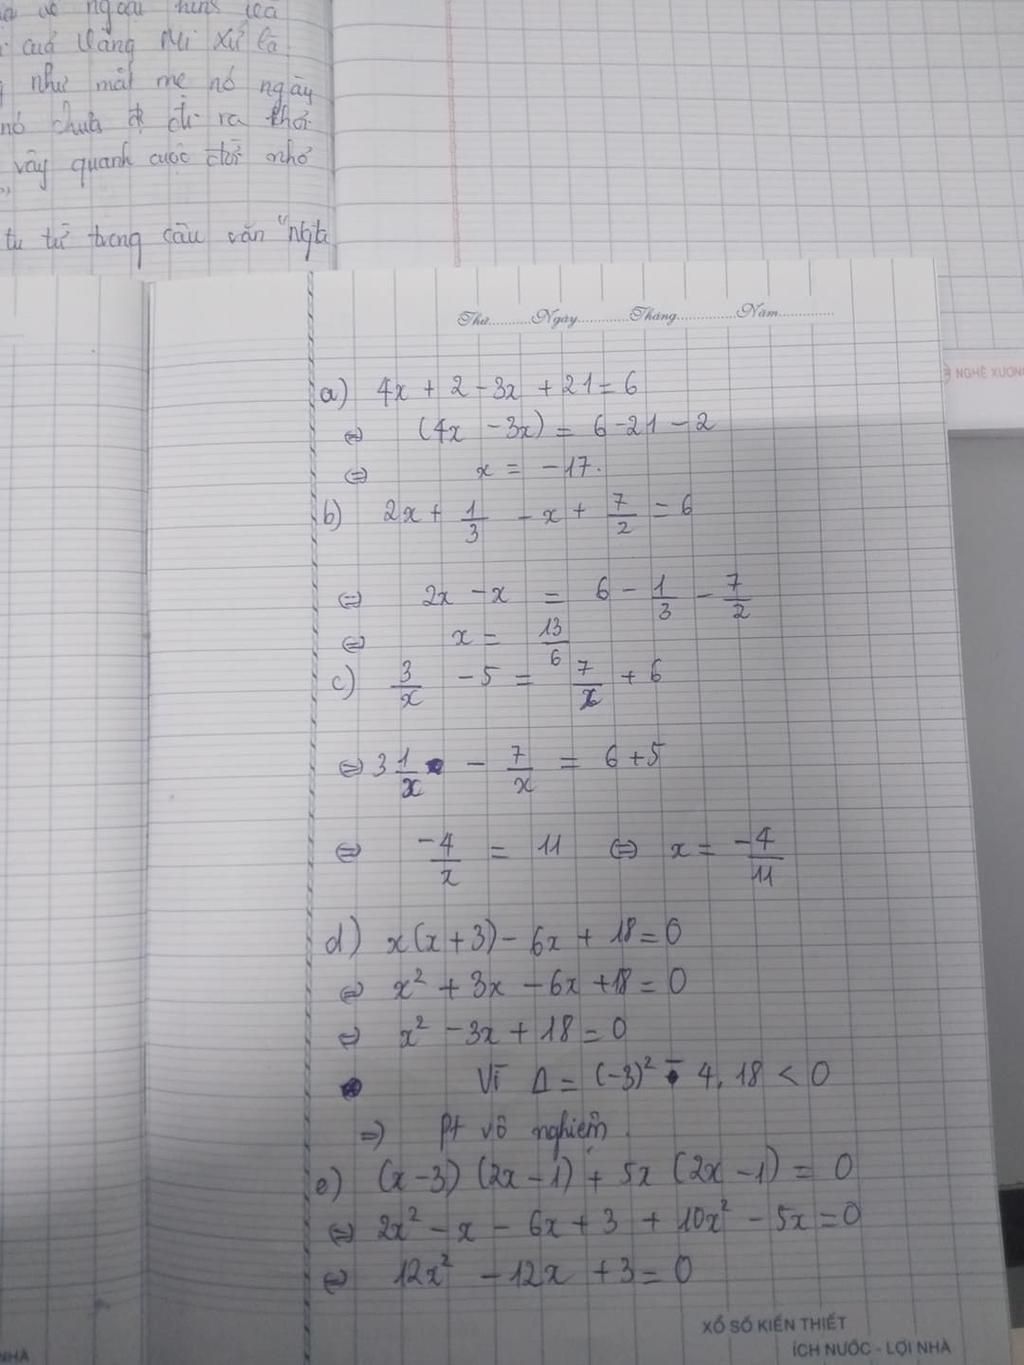 cuả Vàng thì xứ là
như mất mẹ nó ngày
nó chưa đi ra khỏi
vây quanh cuộc đời nhỏ
tu từ trong câu văn "Ngta
Thứ..........Ngày............Tháng..............Năm.............
NGHỆ XƯƠN
a) 4x + 2 - 3x + 21 = 6
⇔ (4x - 3x) = 6 - 21 - 2
⇔ x = -17.
b) 2x + 1/3 - x + 7/2 = 6
⇔ 2x - x = 6 - 1/3 - 7/2
⇔ x = 13/6
c) 3/x - 5 = 7/x + 6
⇔ 3 1/x - 7/x = 6 + 5
⇔ -4/x = 11 ⇔ x = -4/11
d) x(x + 3) - 6x + 18 = 0
⇔ x² + 3x - 6x + 18 = 0
⇔ x² - 3x + 18 = 0
Vì Δ = (-3)² - 4. 18 < 0
⇒ Pt vô nghiệm
e) (x - 3) (2x - 1) + 5x (2x - 1) = 0
⇔ 2x² - x - 6x + 3 + 10x² - 5x = 0
⇔ 12x² - 12x + 3 = 0
XỔ SỐ KIẾN THIẾT
ÍCH NƯỚC - LỢI NHÀ
NHÀ